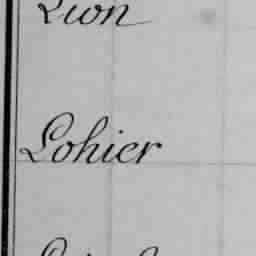 Lion
Lohier